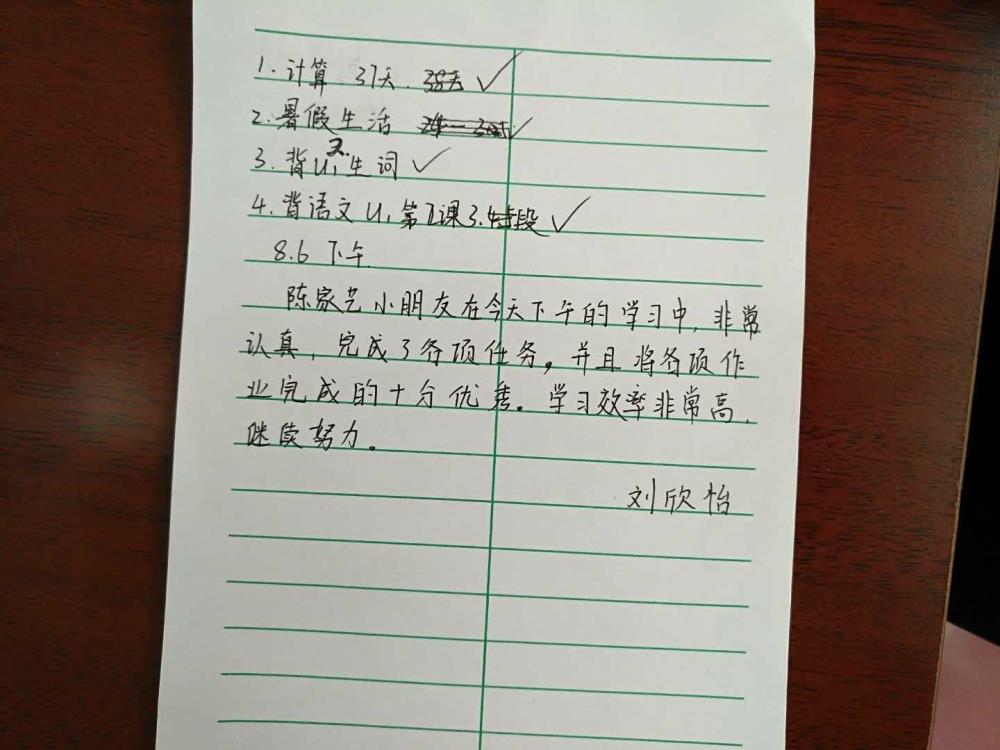 1. 计算 37天. 38天 ✓
2. 暑假生活 ✓
3. 背U1, 2. 生词 ✓
4. 背语文U1第2课3.特段 ✓
8.6 下午
陈家艺小朋友在今天下午的学习中, 非常
认真, 完成了各项任务。并且将各项作
业完成的十分优秀。学习效率非常高,
继续努力。
刘欣怡